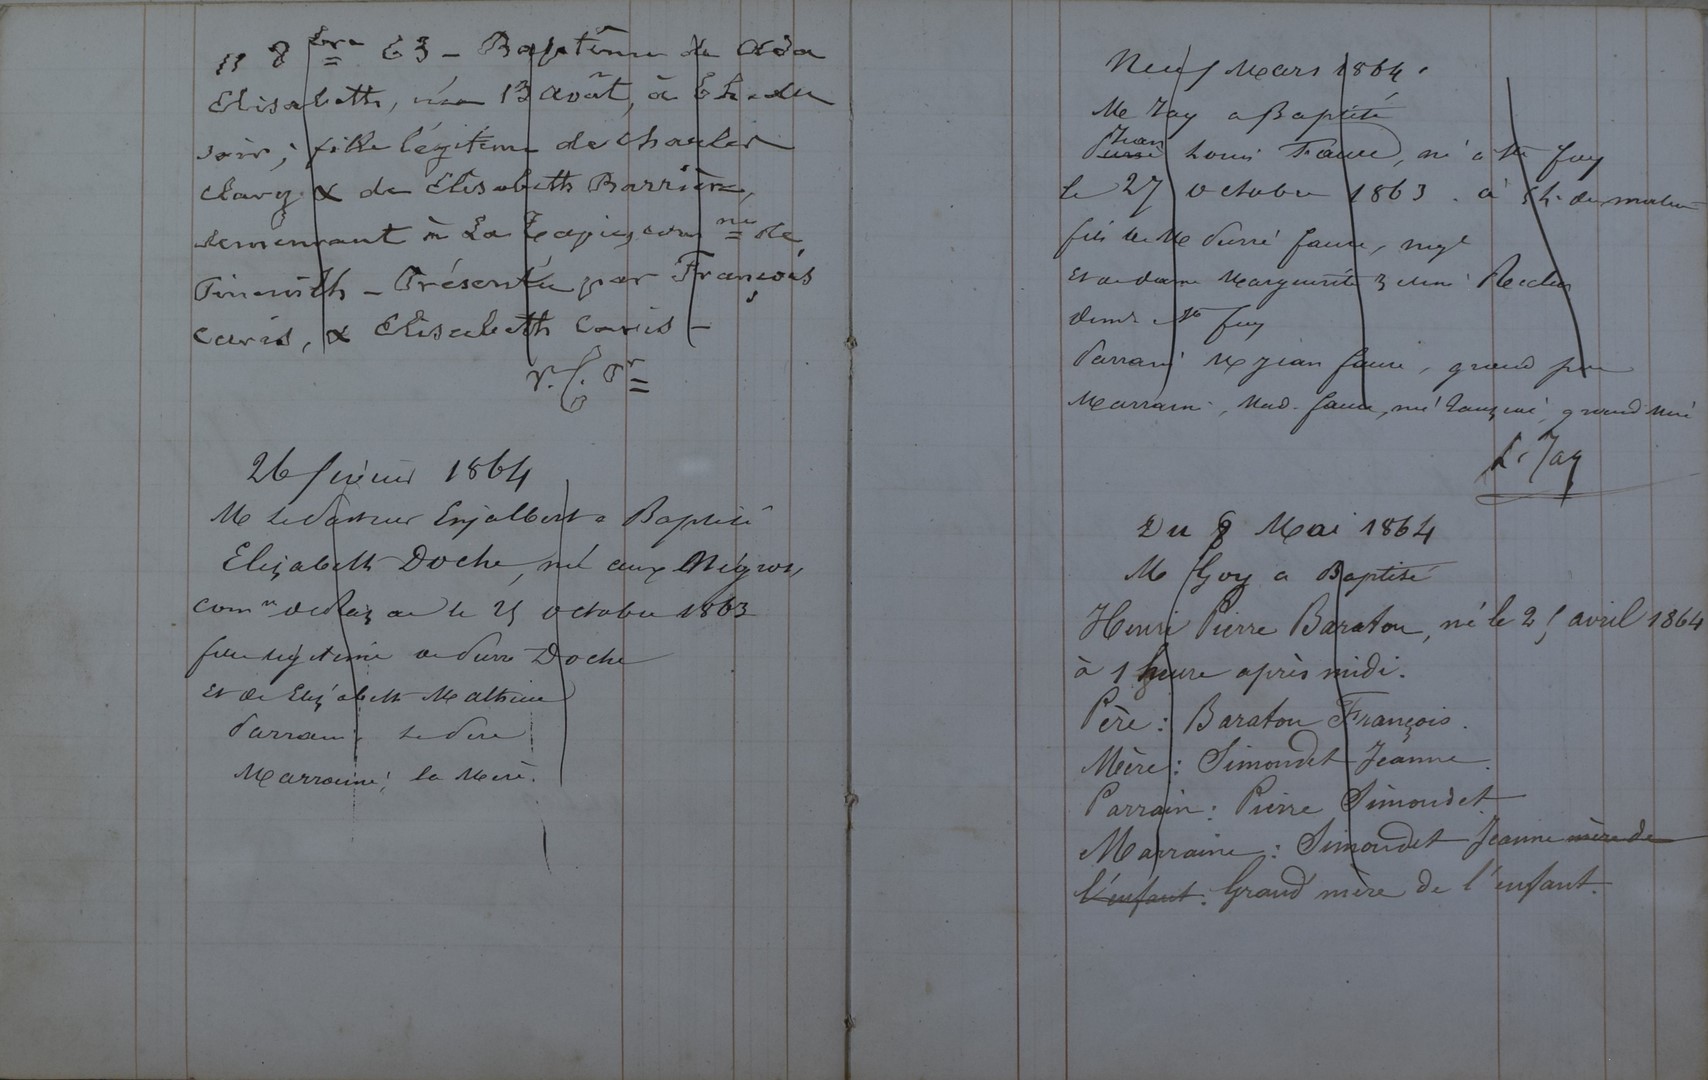 11 8bre 63 – Baptême de Ada
Elisabeth, née 13 août, à 6 h. du
soir; fille légitime de Charles
Clary & de Elisabeth Barrière,
demeurant à La comne de
Pineuilh – Présentée par François
Caris, & Elisabeth Caris –
26 février 1864
M le Pasteur Enjalbert a Baptisé
Elizabeth Doche, né aux Négros,
comne de Razac le 25 octobre 1863
fille légitime de Pierre Doche
et de Elizabeth Mathieu
Parrain le Père
Marraine, la Mère.
Neuf Mars 1864.
M Jay a Baptisé
Pierre Jean Louis Faure, né à Ste foy
le 27 octobre 1863. à 5 h. du matin
fils de M Pierre faure, negt
et de dame Marguerite Reclus
demt à Ste foy
Parrain M Jean faure, grand père
Marraine, Mad. faure, née grand mère
L. Jay
Du 8 Mai 1864
M Goy a Baptisé
Henri Pierre Baraton, né le 25 avril 1864
à 1 heure après midi.
Père: Baraton François.
Mère: Simondet Jeanne.
Parrain: Pierre Simondet
Marraine: Simondet Jeanne mère de
l'enfant. Grand mère de l'enfant.